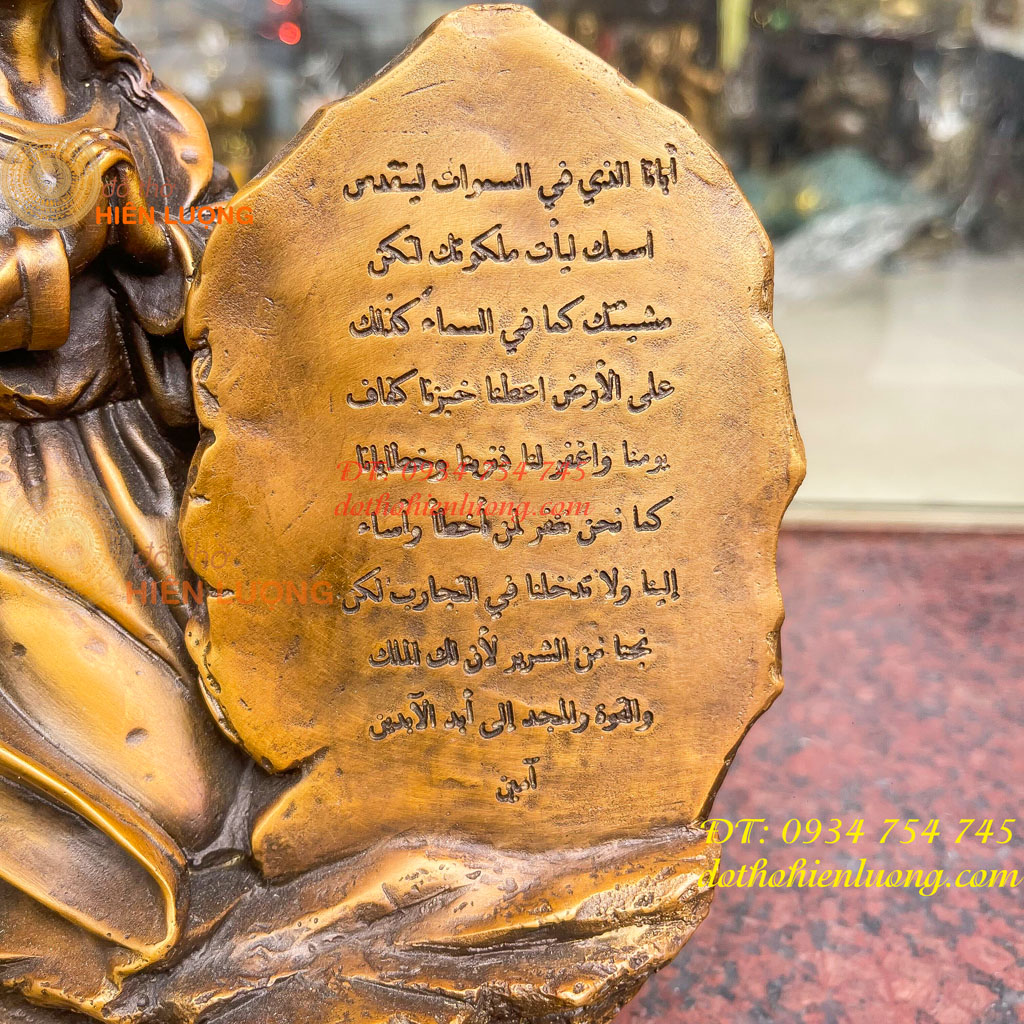 أبانا الذي في السموات ليتقدس
اسمك ليأت ملكوتك لتكن
مشيئتك كما في السماء كذلك
على الأرض اعطنا خبزنا كفاف
يومنا واغفر لنا ذنوبنا وخطايانا
كما نحن نغفر لمن أخطأ وأساء
إلينا ولا تدخلنا في التجارب لكن
نجنا من الشرير لأن لك الملك
والقوة والمجد إلى أبد الآبدين
آمين
đồ thờ
HIỀN LƯỢNG
ĐT: 0934 754 745
dothohienluong.com
đồ thờ
HIỀN LƯỢNG
ĐT: 0934 754 745
dothohienluong.com